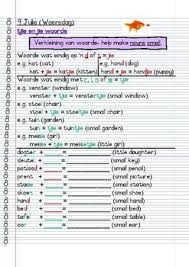 9 Julie (Woensdag)
tjie en jie woorde
Verkleining van woorde- help make nouns small
Woorde wat eindig op 'n d of t = jie
e.g. kat (cat) e.g. hond (dog)
kat + jie = katjie (kitten) hond + jie = hondjie (puppy)
Woorde wat eindig met r, l, n of e = tjie
e.g. venster (window)
venster + tjie = venstertjie (small window)
e.g. stoel (chair)
stoel + tjie = stoeltjie (small chair)
e.g. tuin (garden)
tuin + tjie = tuintjie (small garden)
e.g. meisie (girl)
meisie + tjie = meisietjie (little girl)
dogter + = (little daughter)
sleutel + = (small key)
potlood + = (small pencil)
prent + = (small picture)
stasie + = (small station)
skoen + = (small shoe)
hand + = (small hand)
bed + = (small bed)
tafel + = (small table)
oor + = (small ear)